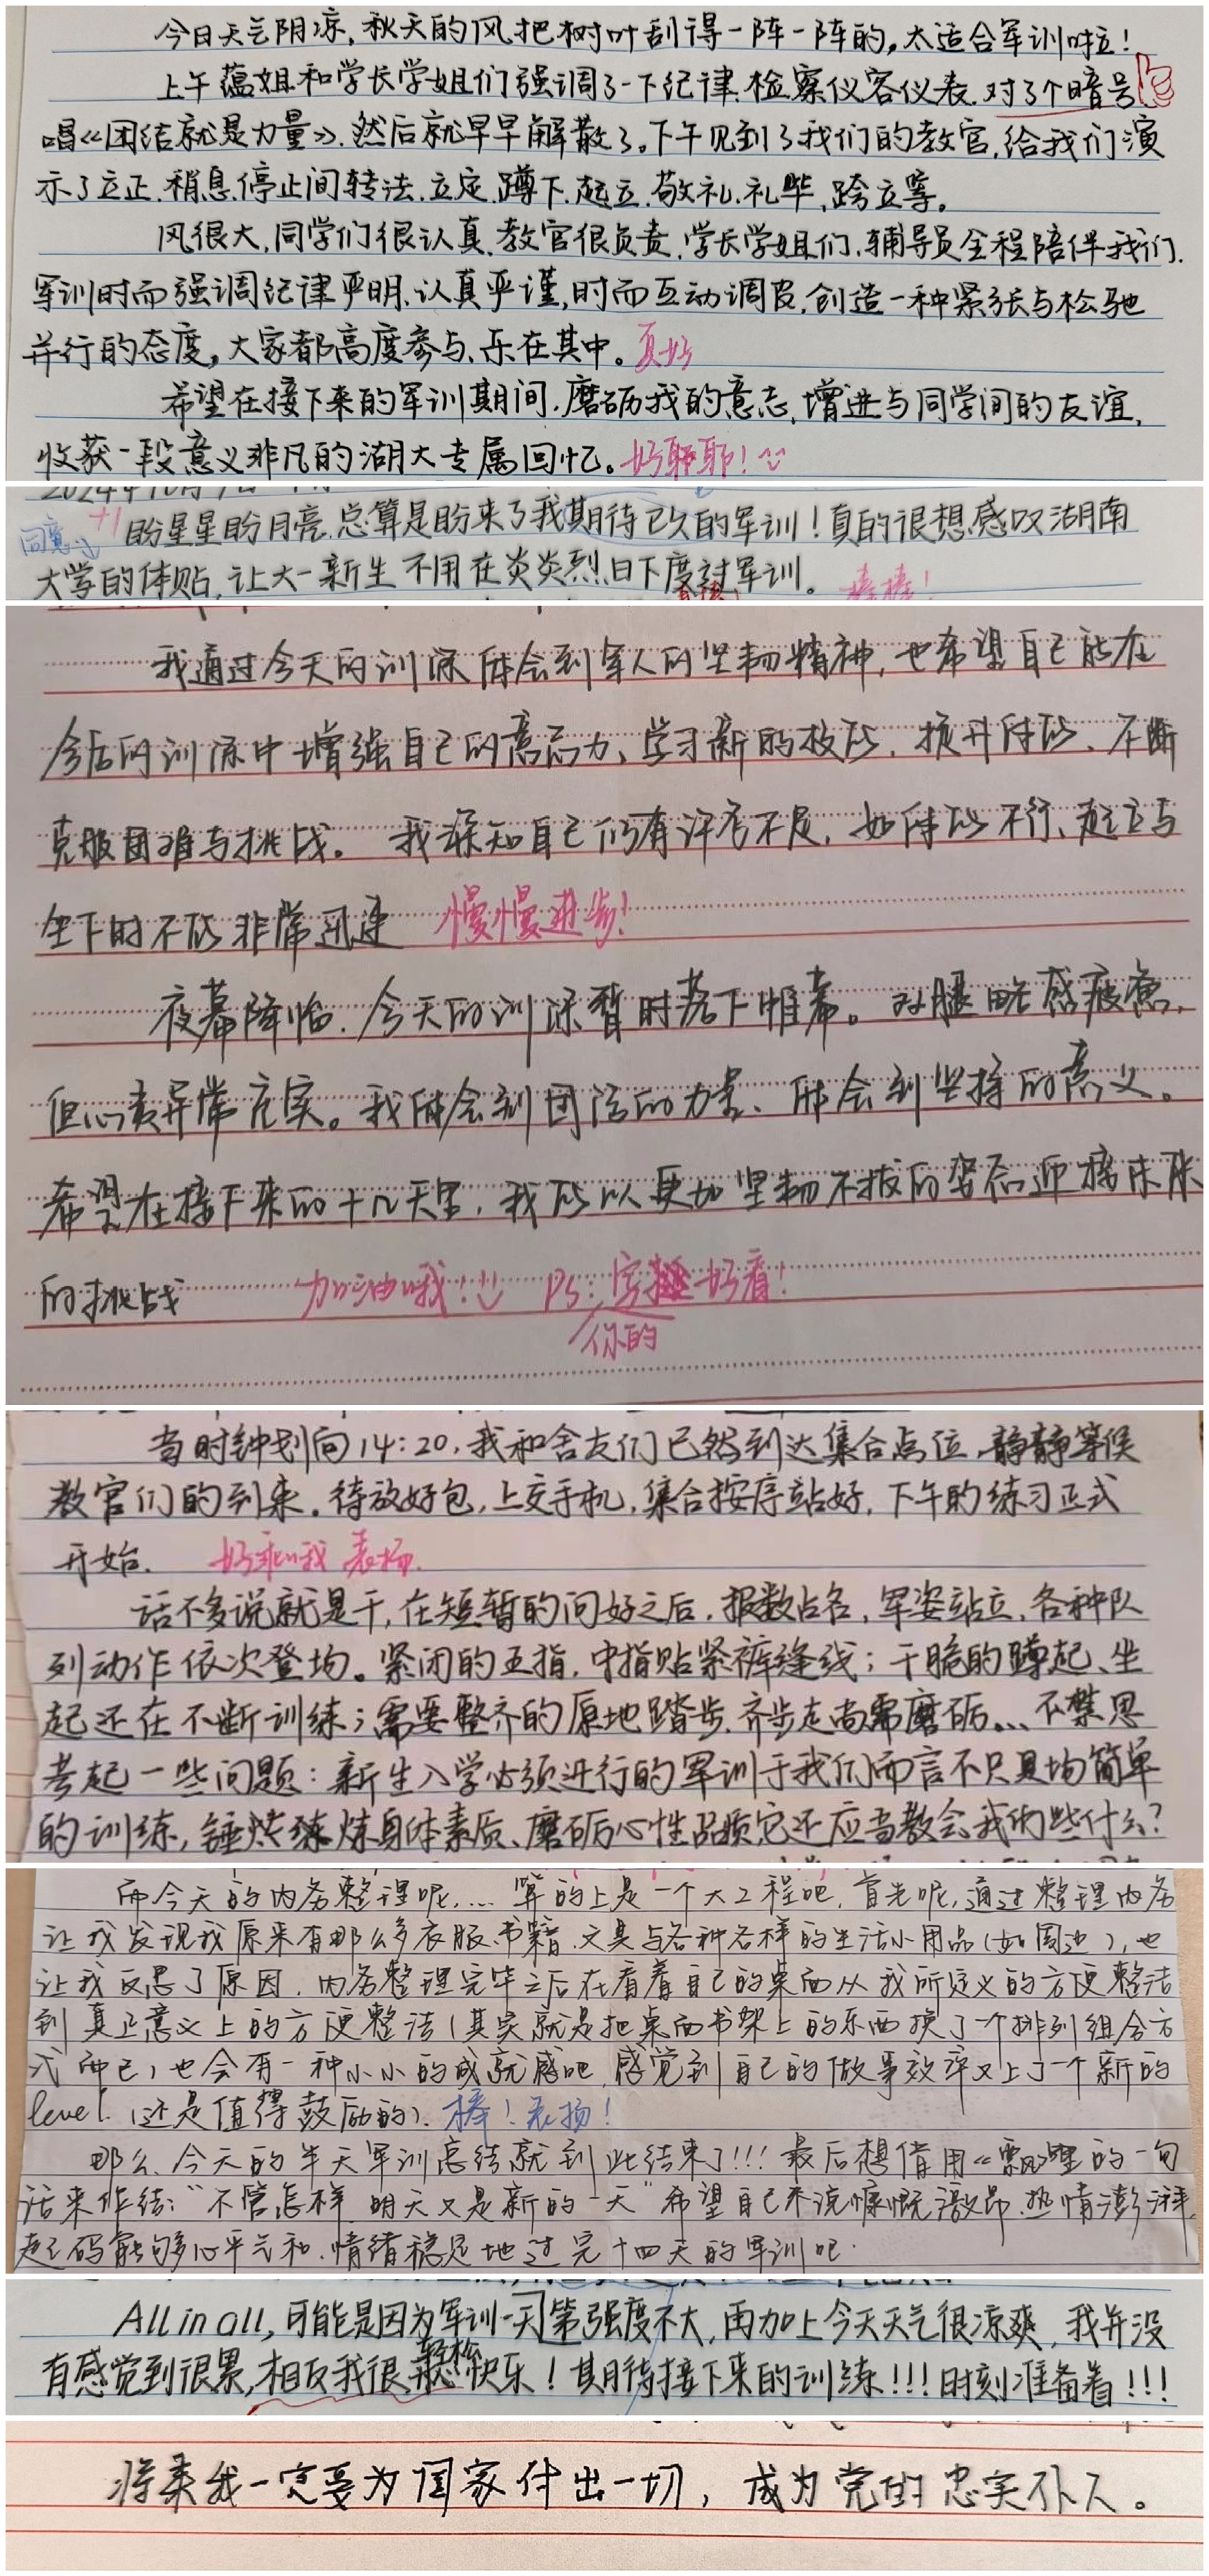 今日天气阴凉,秋天的风把树叶刮得一阵一阵的,太适合军训啦!
上午蕴姐和学长学姐们强调了一下纪律.检察仪容仪表.对了个暗号
唱《团结就是力量》.然后就早早解散了。下午见到了我们的教官,给我们演
示了立正.稍息.停止间转法.立定.蹲下.起立.敬礼.礼毕,跨立等。
风很大,同学们很认真.教官很负责.学长学姐们.辅导员全程陪伴我们.
军训时而强调纪律严明.认真严谨,时而互动调皮.创造一种紧张与松驰
并行的态度,大家都高度参与、乐在其中。真好
希望在接下来的军训期间.磨砺我的意志,增进与同学间的友谊,
收获一段意义非凡的湖大专属回忆。好耶耶!
同意 +1 盼星星盼月亮.总算是盼来了我期待已久的军训!真的很想感叹湖南
大学的体贴,让大一新生不用在炎炎烈日下度过军训。棒棒!
我通过今天的训练体会到军人的坚韧精神,也希望自己能在
今后的训练中增强自己的意志力、学习新的技能、提升体能、不断
克服困难与挑战。我深知自己仍有许多不足,如体能不行、起立与
坐下时不能非常迅速 慢慢进步!
夜幕降临.今天的训练暂时落下帷幕。双腿略感疲惫,
但心责异常充实。我体会到团结的力量、体会到坚持的意义。
希望在接下来的十几天里,我能以更加坚韧不拔的姿态迎接未来
的挑战 加油哦! PS:字好看!
你的
当时钟划向14:20,我和舍友们已然到达集合点位,静静等候
教官们的到来。待放好包,上交手机,集合按序站好,下午的练习正式
开始. 好乖哦 表扬.
话不多说就是干,在短暂的问好之后,报数占名,军姿站立,各种队
列动作依次登场。紧闭的五指,中指贴紧裤缝线;干脆的蹲起、坐
起还在不断训练;需要整齐的原地踏步.齐步走尚需磨砺...不禁思
考起一些问题:新生入学必须进行的军训于我们而言不只是场简单
的训练,锤炼身体素质、磨砺心性品质它还应当教会我们些什么?
而今天的内务整理呢,...算的上是一个大工程吧,首先呢,通过整理内务
让我发现我原来有那么多衣服.书籍.文具与各种各样的生活小用品(如周边),也
让我反思了原因.内务整理完毕之后在看着自己的桌面从我所定义的方便整洁
到真正意义上的方便整洁(其实就是把桌面书架上的东西换了一个排列组合方
式而已)也会有一种小小的成就感吧,感觉到自己的做事效率又上了一个新的
level.(还是值得鼓励的).棒!表扬!
那么、今天的半天军训总结就到此结束了!!!最后想借用《飘》里的一句
话来作结:"不管怎样 明天又是新的一天"希望自己不说慷慨激昂.热情澎湃,
起码能够心平气和.情绪稳定地过完十四天的军训吧.
All in all,可能是因为军训第一天强度不大,再加上今天天气很凉爽,我并没
有感觉到很累,相反我很轻松快乐!期待接下来的训练!!!时刻准备着!!!
将来我一定要为国家付出一切,成为党的忠实仆人。